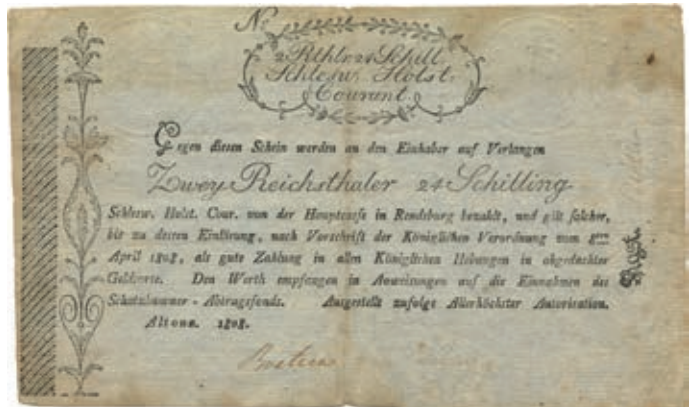 No
2 Rthlr 24 Schill.
Schlesw. Holst.
Courant.
Gegen diesen Schein werden an den Einhaber auf Verlangen
Zwey Reichsthaler 24 Schilling
Schlesw. Holst. Cour. von der Hauptcasse in Rendsburg bezahlt, und gilt solcher,
bis zu dessen Einlösung, nach Vorschrift der Königlichen Verordnung vom
April 1808, als gute Zahlung in allen Königlichen Hebungen in obgedachter
Geldsorte. Den Werth empfangen in Anweisungen auf die Einnahmen des
Schatzkammer-Abtragsfonds. Ausgestellt zufolge Allerhöchster Autorisation.
Altona. 1808.